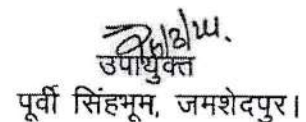 उपायुक्त
पूर्वी सिंहभूम, जमशेदपुर।